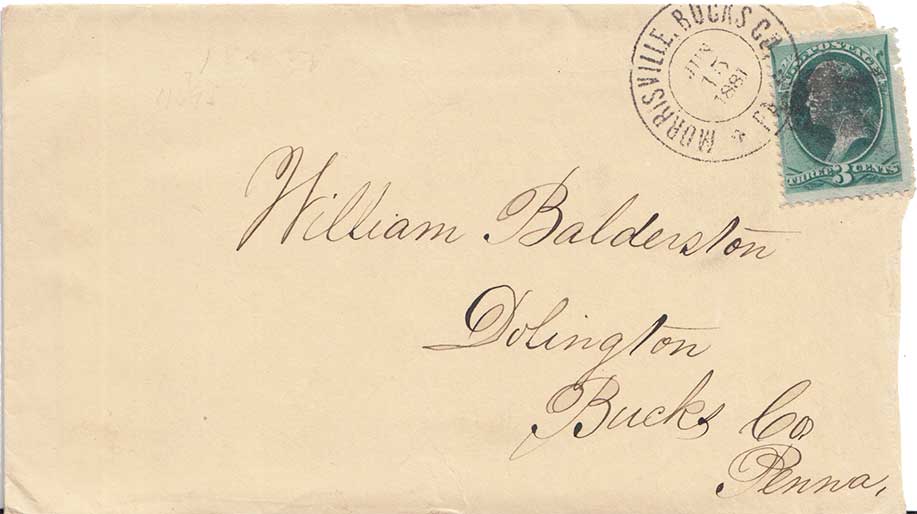 MORRISVILLE, BUCKS CO. PA.
JUN
15
1881
U.S. POSTAGE
THREE 3 CENTS
William Balderston
Dolington
Bucks Co
Penna,